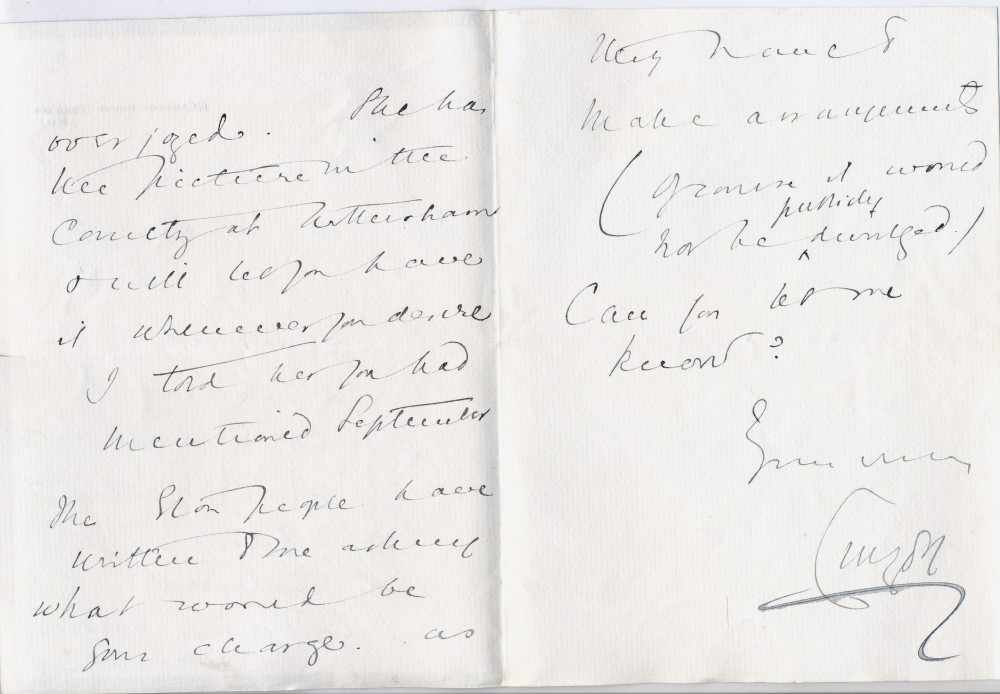 overjoyed. She has
the picture in the
County at
& will let you have
it whenever you desire
I told her you had
mentioned September
The Eton people have
written to me asking
what would be
your charge. as
they have to
make arrangements
(of course it would
not be publicly divulged.)
Can you let me
know?
Yours
Curzon